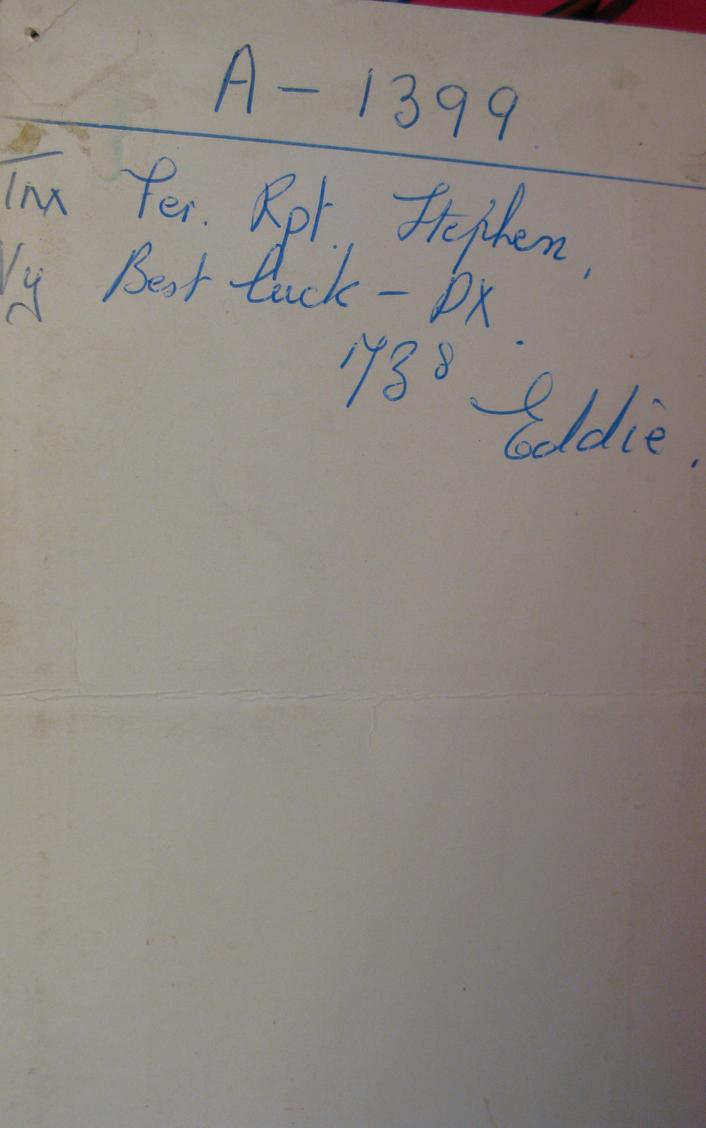 A - 1399
Tnx Fer. Rpt. Stephen,
Vy Best luck - DX.
73s Eddie.